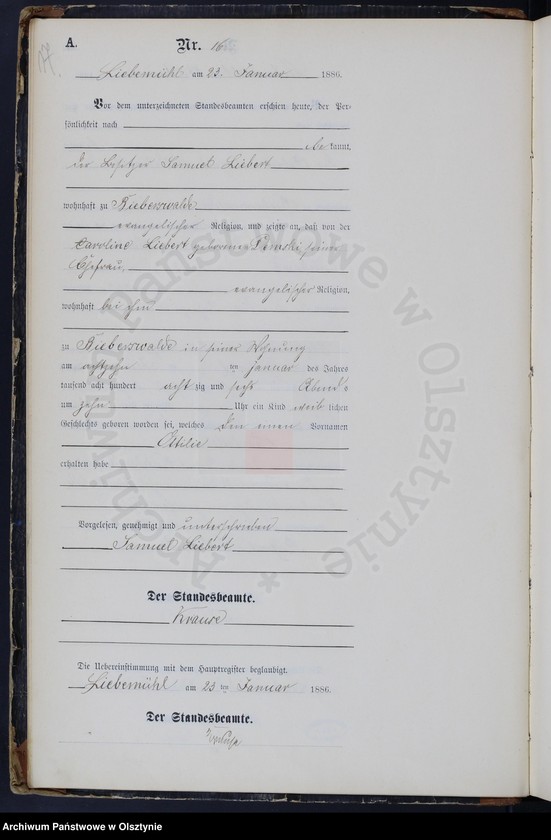 A.
Nr. 16
Liebemühl am 23. Januar 1886.
Vor dem unterzeichneten Standesbeamten erschien heute, der Per-
sönlichkeit nach
be kannt,
der Besitzer Samuel Liebert
wohnhaft zu Bieberswalde
evangelischer Religion, und zeigte an, daß von der
Caroline Liebert geborenen seiner
Ehefrau,
evangelischer Religion,
wohnhaft bei ihm
zu Bieberswalde in seiner Wohnung
am achtzehn ten Januar des Jahres
tausend acht hundert acht zig und sechs Abends
um zehn Uhr ein Kind weib lichen
Geschlechts geboren worden sei, welches den einen Vornamen
Ottilie
erhalten habe
Vorgelesen, genehmigt und unterschrieben
Samuel Liebert
Der Standesbeamte.
Krause
Die Uebereinstimmung mit dem Hauptregister beglaubigt.
Liebemühl am 23 ten Januar 1886.
Der Standesbeamte.
Archiwum Państwowe w Olsztynie *
Archiwum Państwowe w Olsztynie